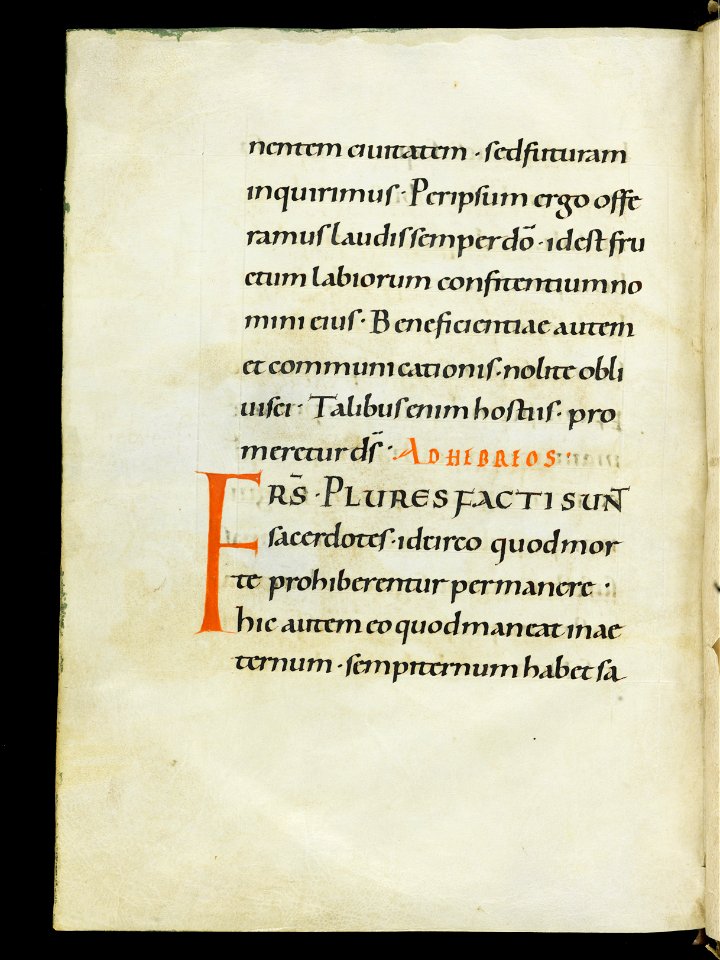 nentem ciuitatem · sed futuram
inquirimus · Per ipsum ergo offe
ramus laudis semper dō · id est fru
ctum labiorum confitentium no
mini eius · Beneficientiae autem
et communicationis · nolite obli
uisci · Talibus enim hostiis · pro
meretur ds̄ · AD HEBREOS ·
FRS̄ · PLURES FACTI SUNT
sacerdotes · idcirco quod mor
te prohiberentur permanere ·
hic autem eo quod maneat in ae
ternum · sempiternum habet sa